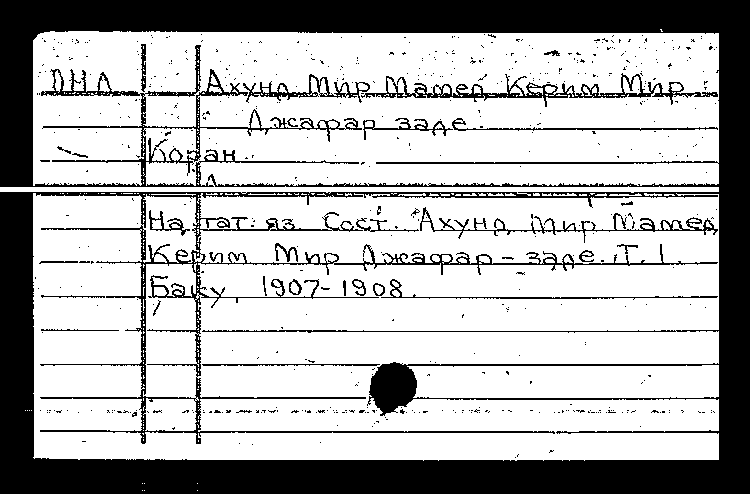 ДНЛ Ахунд Мир Мамед Керим Мир
Джафар заде
Коран
На тат. яз. Сост. Ахунд Мир Мамед
Керим Мир Джафар-заде. Т. 1.
Баку, 1907-1908.